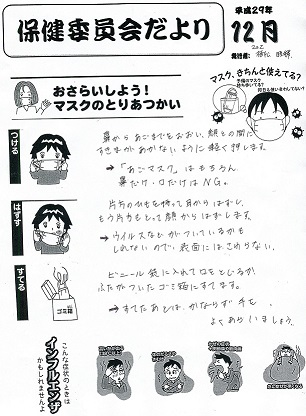 保健委員会だより
平成29年
12月
おさらいしよう!
マスクのとりあつかい
マスク、きちんと使えてる?
つける
鼻からあごまでをおおい、顔との間に
すきまがあかないように軽く押します。
→「あごマスク」はもちろん、
鼻だけ・口だけはNG。
はずす
片方のひもを持って耳からはずし、
もう片方もとって顔からはずします。
→ウイルスなどがついているかも
しれないので、表面にはさわらない。
すてる
ビニール袋に入れて口をとじるか
ふたがついたゴミ箱にすてます。
→すてたあとは、かならず手を
よくあらいましょう。
ゴミ箱
こんな症状のときは
インフルエンザ
かもしれませんよ